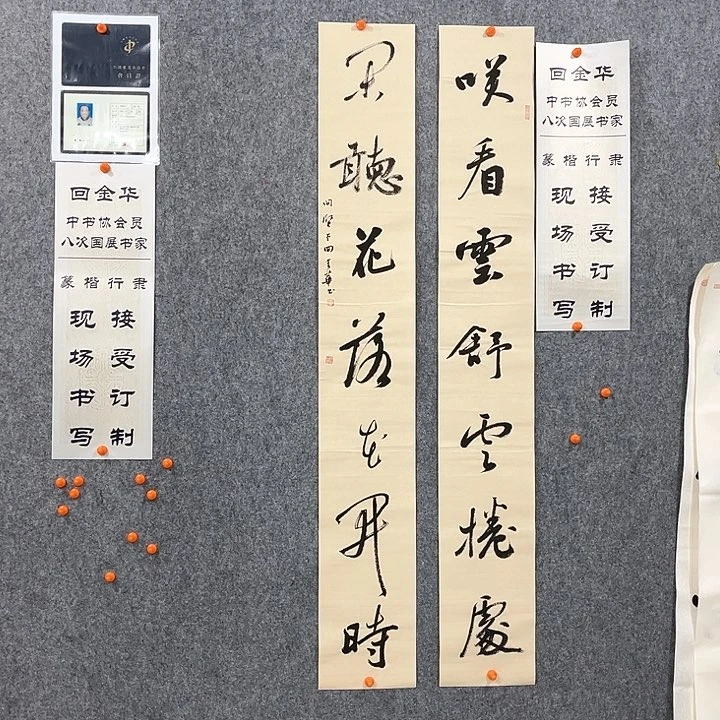 回金华
中书协会员
八次国展书家
篆楷行隶
现场书写
接受订制
咲看雲舒云捲處
閑聽花落花開時
回金华
中书协会员
八次国展书家
篆楷行隶
现场书写
接受订制